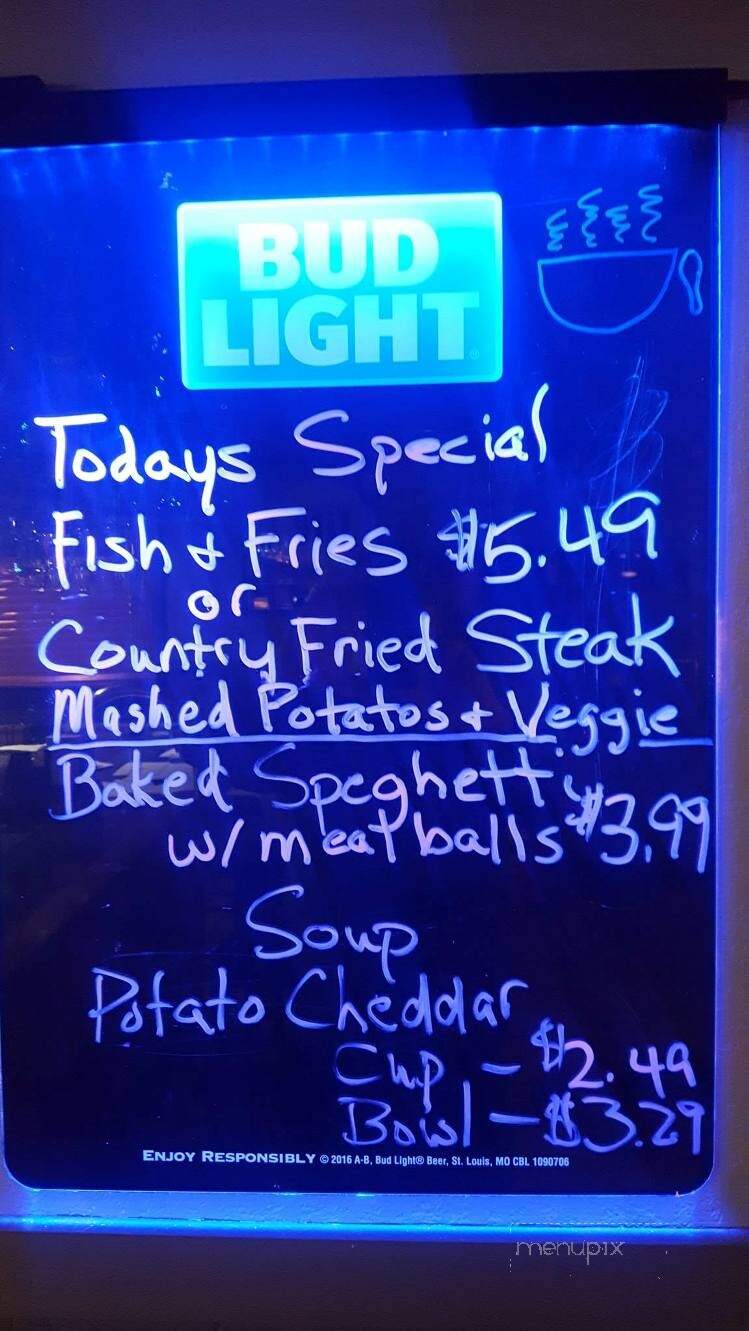 BUD
LIGHT
Todays Special
Fish & Fries $5.49
or
Country Fried Steak
Mashed Potatos & Veggie
Baked Speghetti
w/ meatballs $3.99
Soup
Potato Cheddar
Cup - $2.49
Bowl - $3.29
ENJOY RESPONSIBLY © 2016 A-B, Bud Light® Beer, St. Louis, MO CBL 1090706
menupix